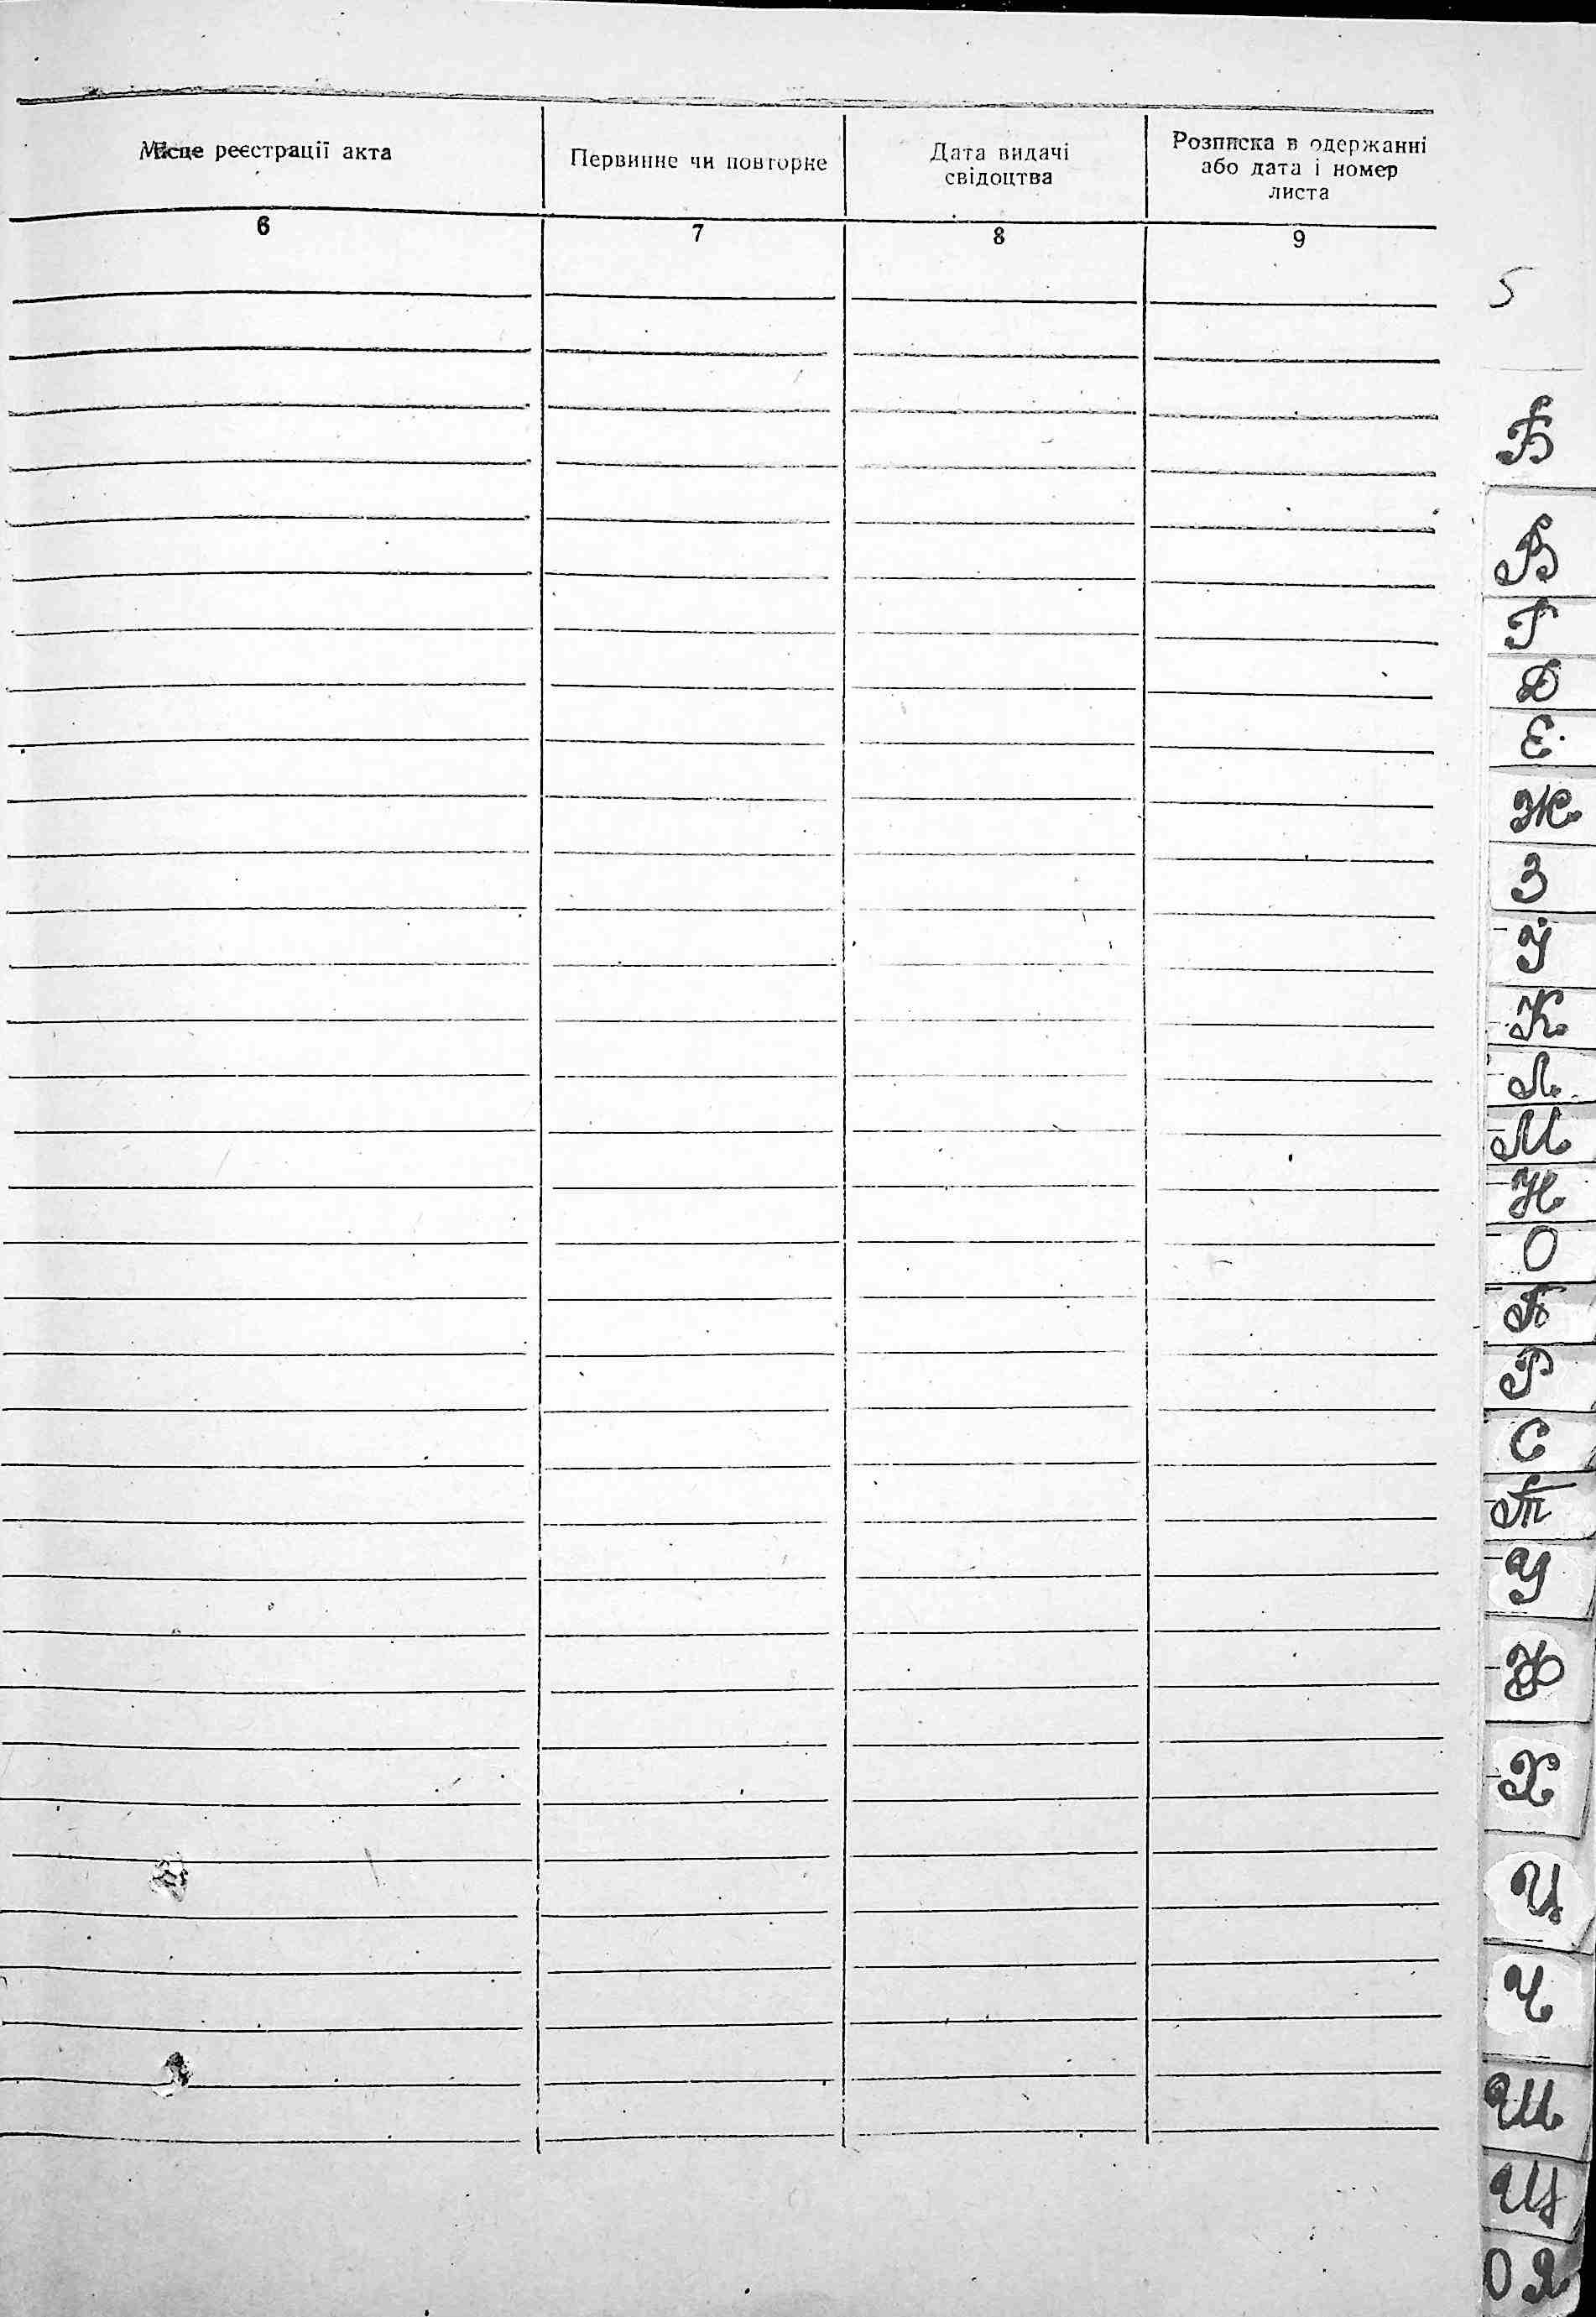 Місце реєстрації акта
Первинне чи повторне
Дата видачі
свідоцтва
Розписка в одержанні
або дата і номер
листа
6
7
8
9
5
Б
В
Г
Д
Е
Ж
З
І
К
Л
М
Н
О
П
Р
С
Т
У
Ф
Х
Ц
Ч
Ш
Щ
Ю Я